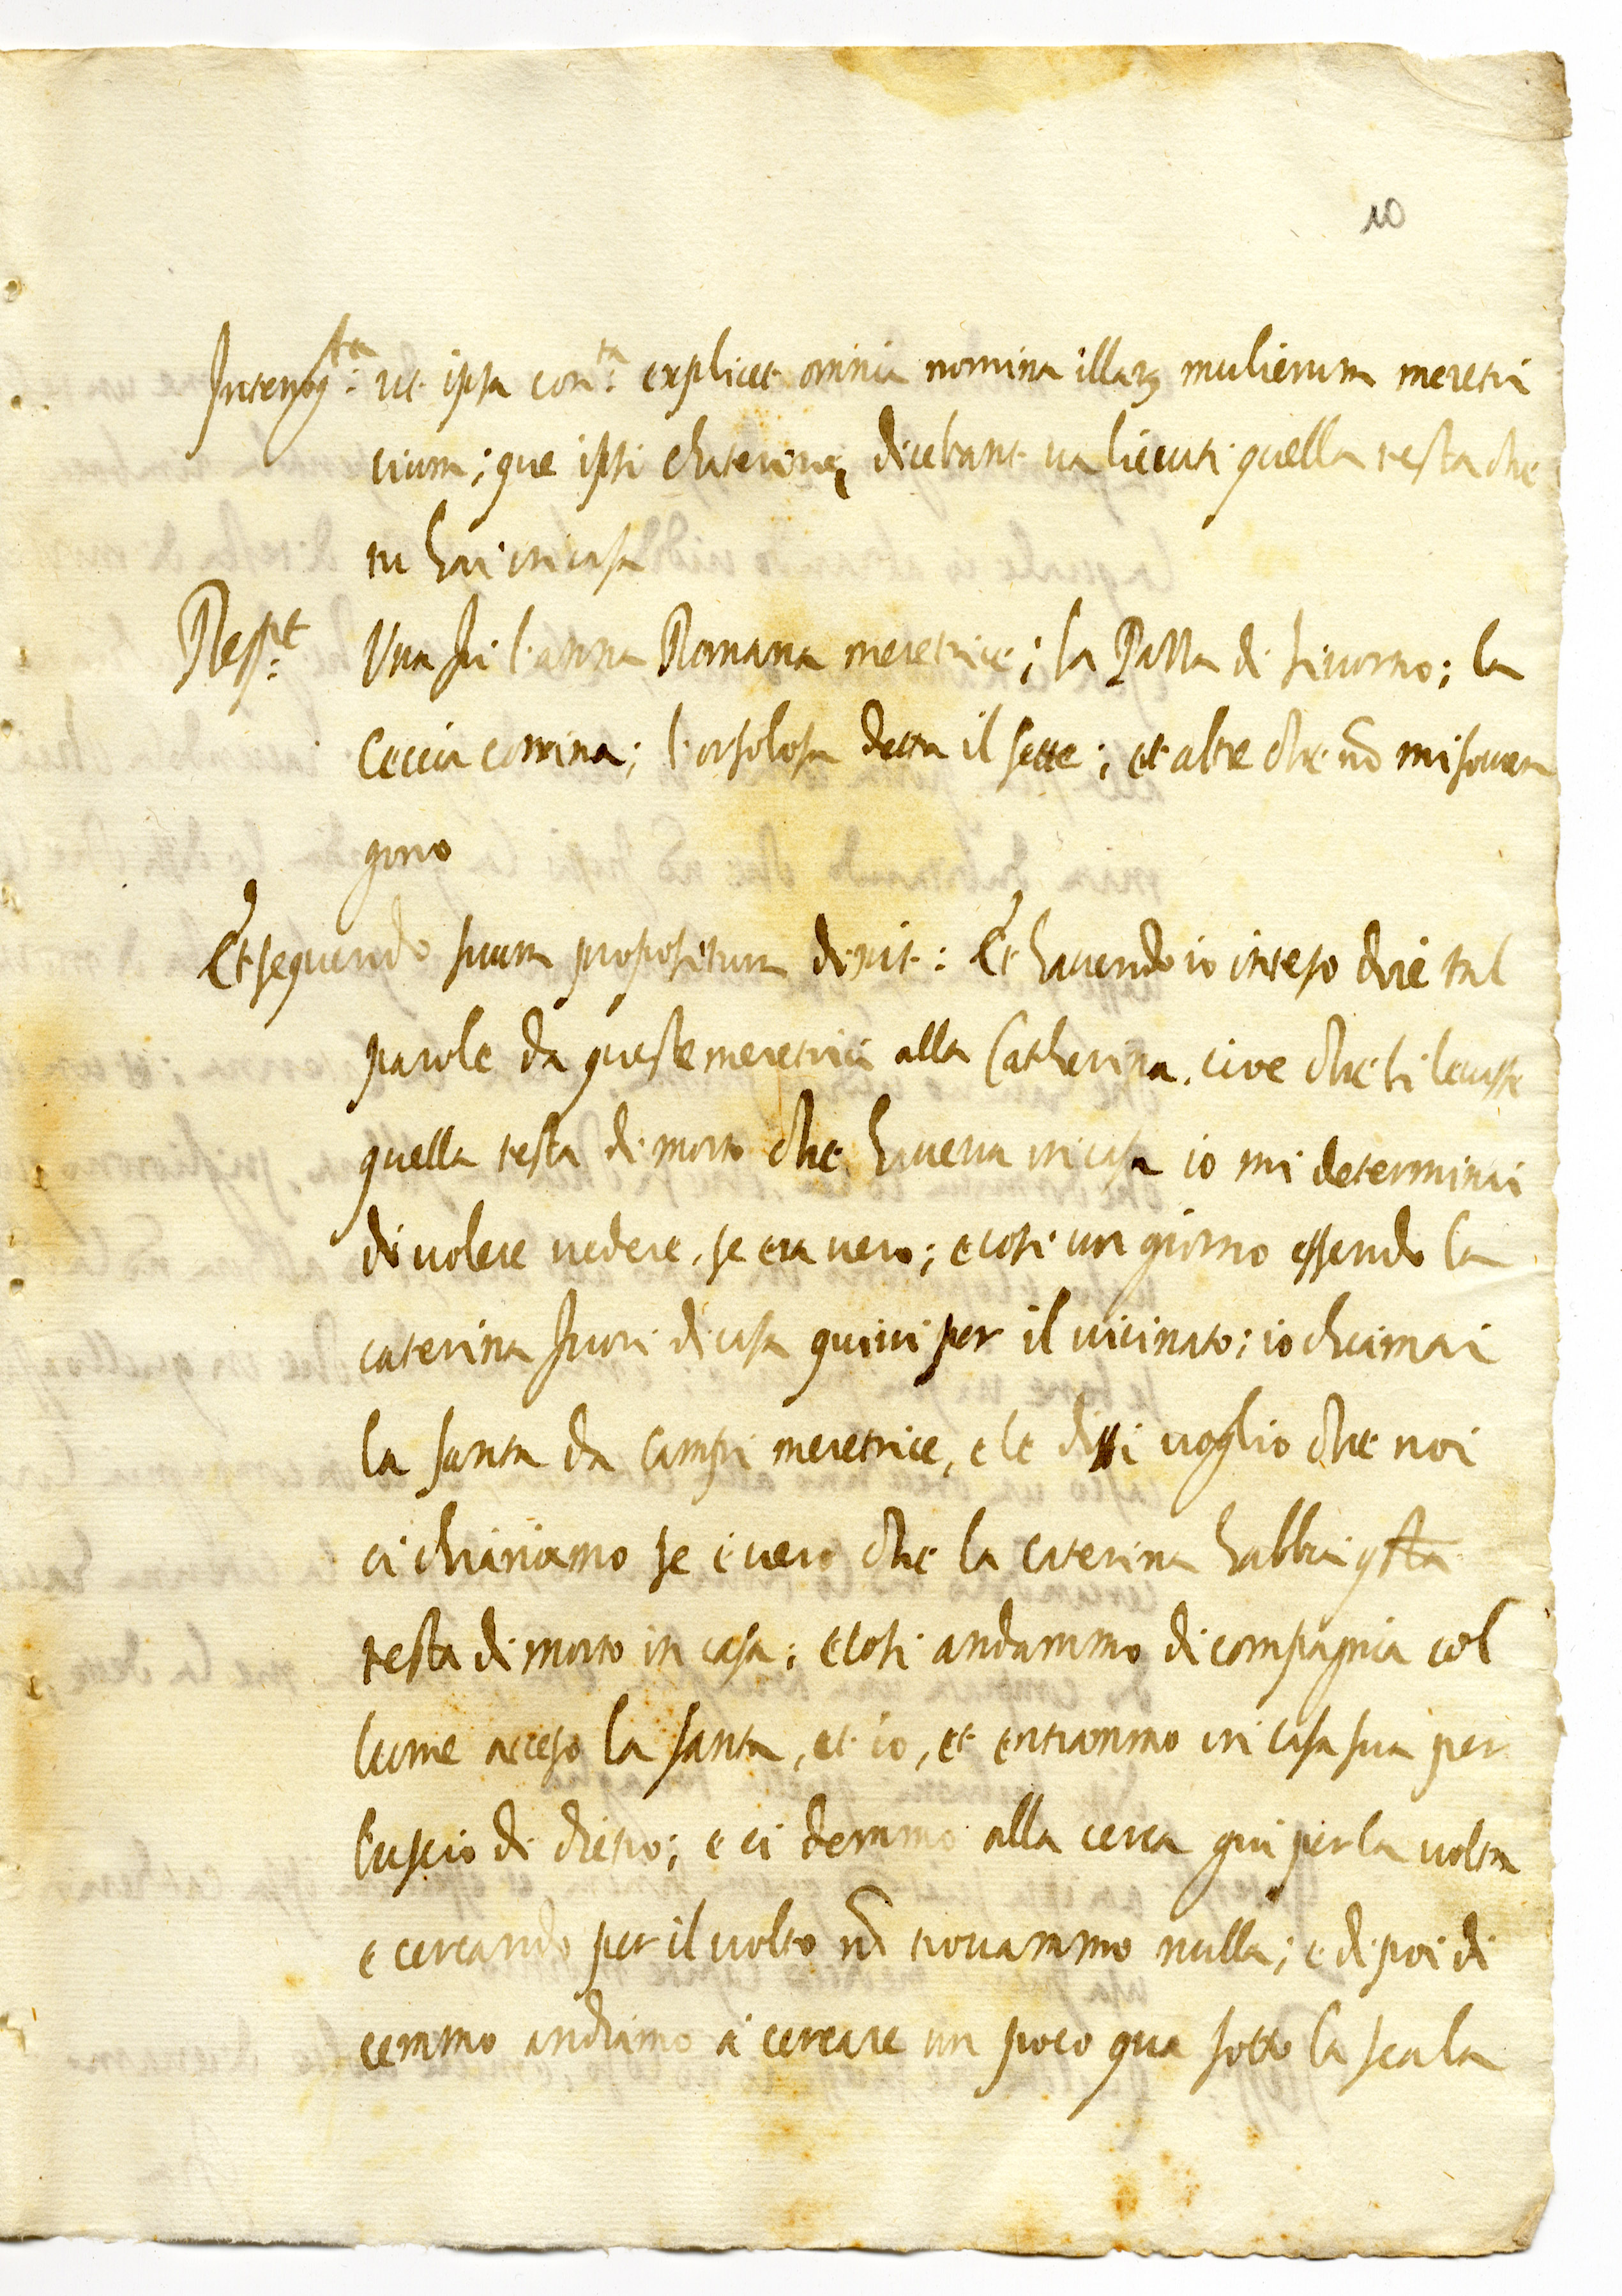 10
Interrog:ta ut ipsa con:ta explicet omnia nomina illarũ mulierum meretri
cium; que ipsi chaterinę dicebant va lievati quella testa che
tu hai in casa
Resp:t Una fu l'anna Romana meretrice; la di Livorno; la
Ceccia l'orsolosa detta il sette; et altre che nõ mi souen
gono
Et sequendo suum propositum dixit: Et hauendo io inteso dire tal
parole da queste meretrici alla Catherina, cioe che si leuasse
quella testa di morto che haueua in casa io mi determinai
di volere vedere, se era vero; e cosi un giorno essendo la
caterina fuori di casa quiui per il vicinato; io chiamai
la santa da Campi meretrice, e le dissi voglio che noi
ci chiariamo se è vero che la caterina habbia qsta
testa di morto in casa; e cosi andammo di compagnia col
lume acceso la santa, et io, et entrammo in casa sua per
l'uscio di dietro; e ci demmo alla cerca qui per la volta
e cercando per il volto nõ trouammo nulla; e di poi di
cemmo andiamo à cercare un poco qua sotto la scala